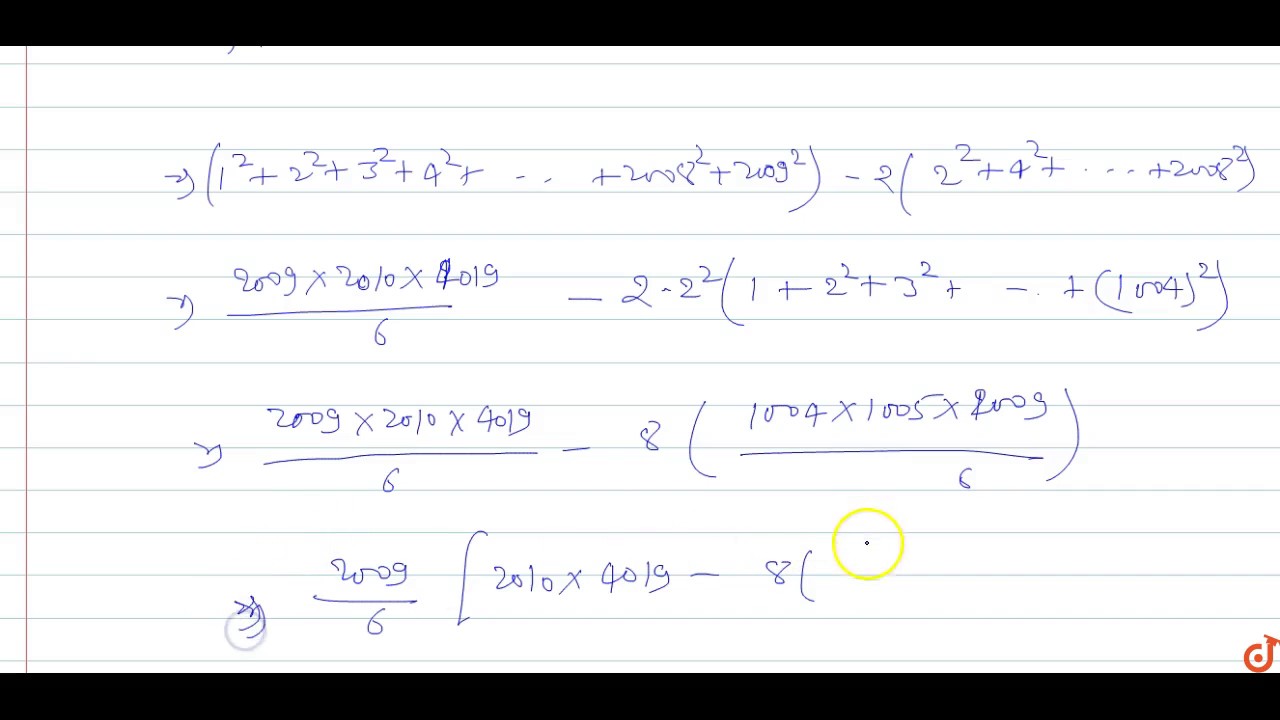 ⇒ (1² + 2² + 3² + 4² + ... + 2008² + 2009²) - 2(2² + 4² + .... + 2008²)
⇒ 2009 × 2010 × 4019 / 6 - 2·2² (1 + 2² + 3² + -.. + (1004)²)
⇒ 2009 × 2010 × 4019 / 6 - 8 (1004 × 1005 × 2009 / 6)
⇒ 2009 / 6 [2010 × 4019 - 8(